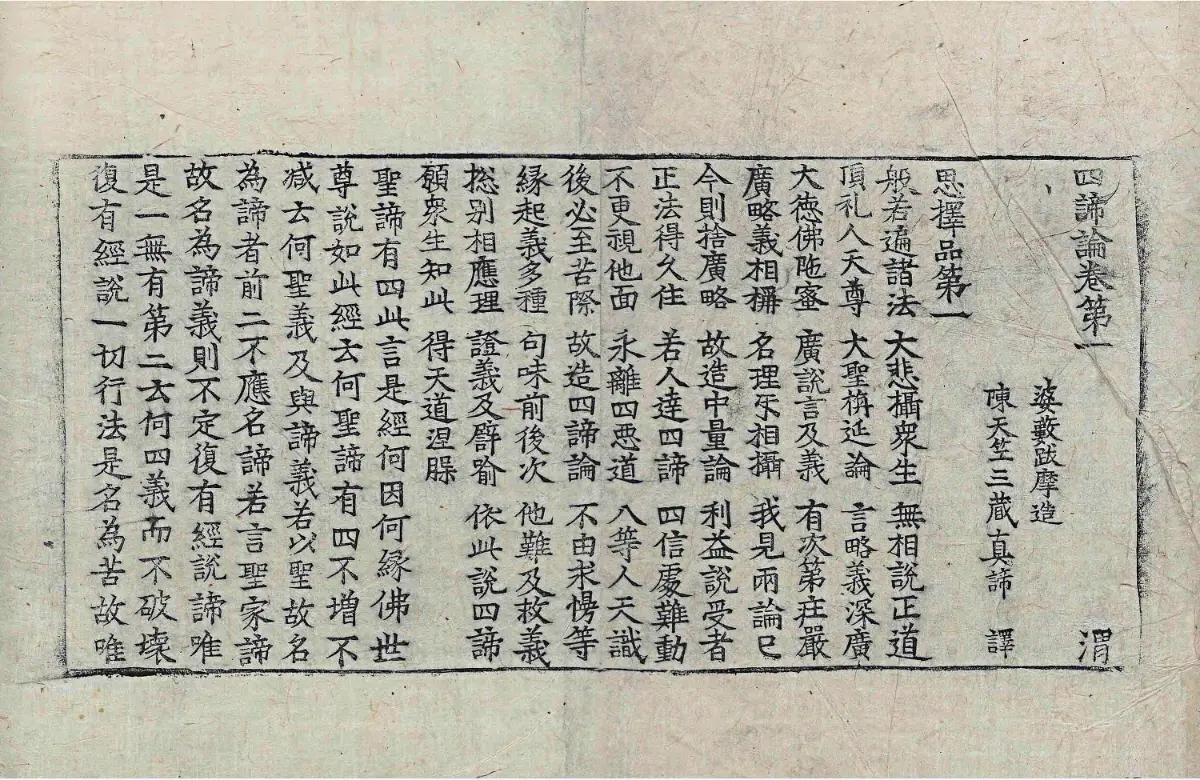 四諦論卷第一 渭
婆藪跋摩造
陳天竺三蔵真諦 譯
思擇品第一
般若遍諸法 大悲攝衆生 無相說正道
頂礼人天尊 大聖栴延論 言略義深廣
大徳佛陁蜜 廣說言及義 有次第荘嚴
廣略義相㭹 名理㸦相攝 我見兩論已
今則捨廣略 故造中量論 利益說受者
正法得久住 若人達四諦 四信處難動
不更視他面 永離四悪道 八等人天識
後必至苦際 故造四諦論 不由求愣等
縁起義多種 句味前後次 他難及救義
捴别相應理 證義及譬喻 依此說四諦
願衆生知此 得天道涅膟
聖諦有四此言是經何因何縁佛世
尊說如此經云何聖諦有四不増不
减云何聖義及與諦義若以聖故名
為諦者前二不應名諦若言聖家諦
故名為諦義則不定復有經說諦唯
是一無有第二云何四義而不破壊
復有經說一切行法是名為苦故唯